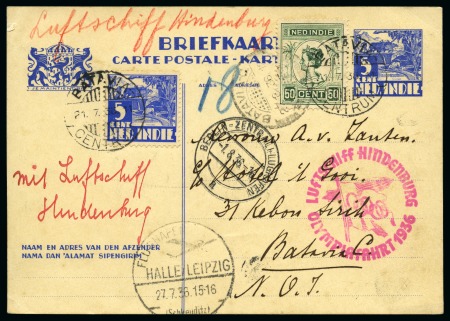 Luftschiff Hindenburg
BRIEFKAART
CARTE POSTALE - KAR
NED.INDIE
60 CENT 60
5
CENT
NED.INDIE
5
CENT
NED.INDIE
BATAVIA
CENTRUM
BATAVIA
CENTRUM
18
BERLIN-ZENTRALFLUGHAFEN
mit Luftschiff
Hindenburg
A. v. Zanten
p/a Hotel 't Gooi
31 Kebon Sirih
Batavia C
N.O.I.
LUFTSCHIFF HINDENBURG
OLYMPIAFAHRT 1936
NAAM EN ADRES VAN DEN AFZENDER
NAMA DAN 'ALAMAT SIPENGIRIM
HALLE-LEIPZIG
27.7.36.15-16
(Schkeuditz)